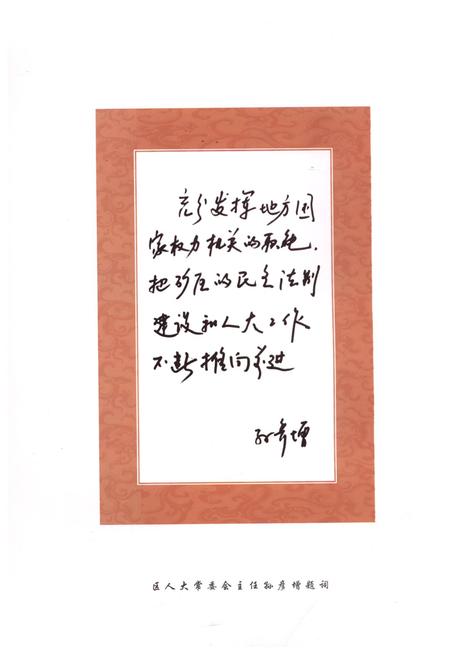 充分发挥地方国
家权力机关的职能，
把矿区的民主法制
建设和人大工作
不断推向前进
孙彦增
区人大常委会主任孙彦增题词